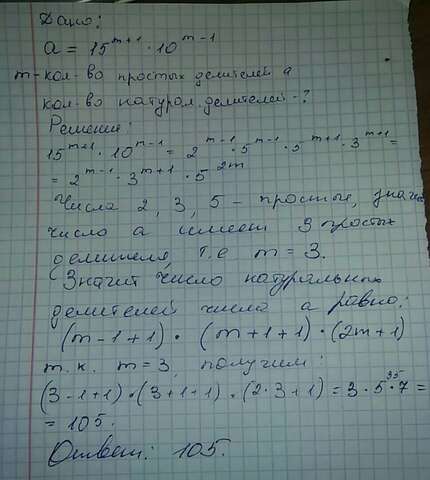 Дано:
a = 15^{m+1} · 10^{m-1}
m - кол-во простых делителей a
кол-во натурал. делителей - ?
Решение:
15^{m+1} · 10^{m-1} = 2^{m-1} · 5^{m-1} · 5^{m+1} · 3^{m+1} =
= 2^{m-1} · 3^{m+1} · 5^{2m}
Числа 2, 3, 5 - простые, значит
число a имеет 3 простых
делителя, т.е m = 3.
Значит число натуральных
делителей числа a равно:
(m-1+1) · (m+1+1) · (2m+1)
т.к. m=3, получим:
(3-1+1) · (3+1+1) · (2·3+1) = 3 · 5 · 7 = 35
= 105.
Ответ: 105.